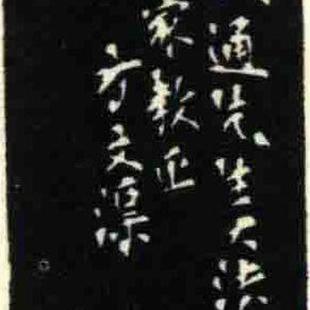 通先生大法
家教正
方文深